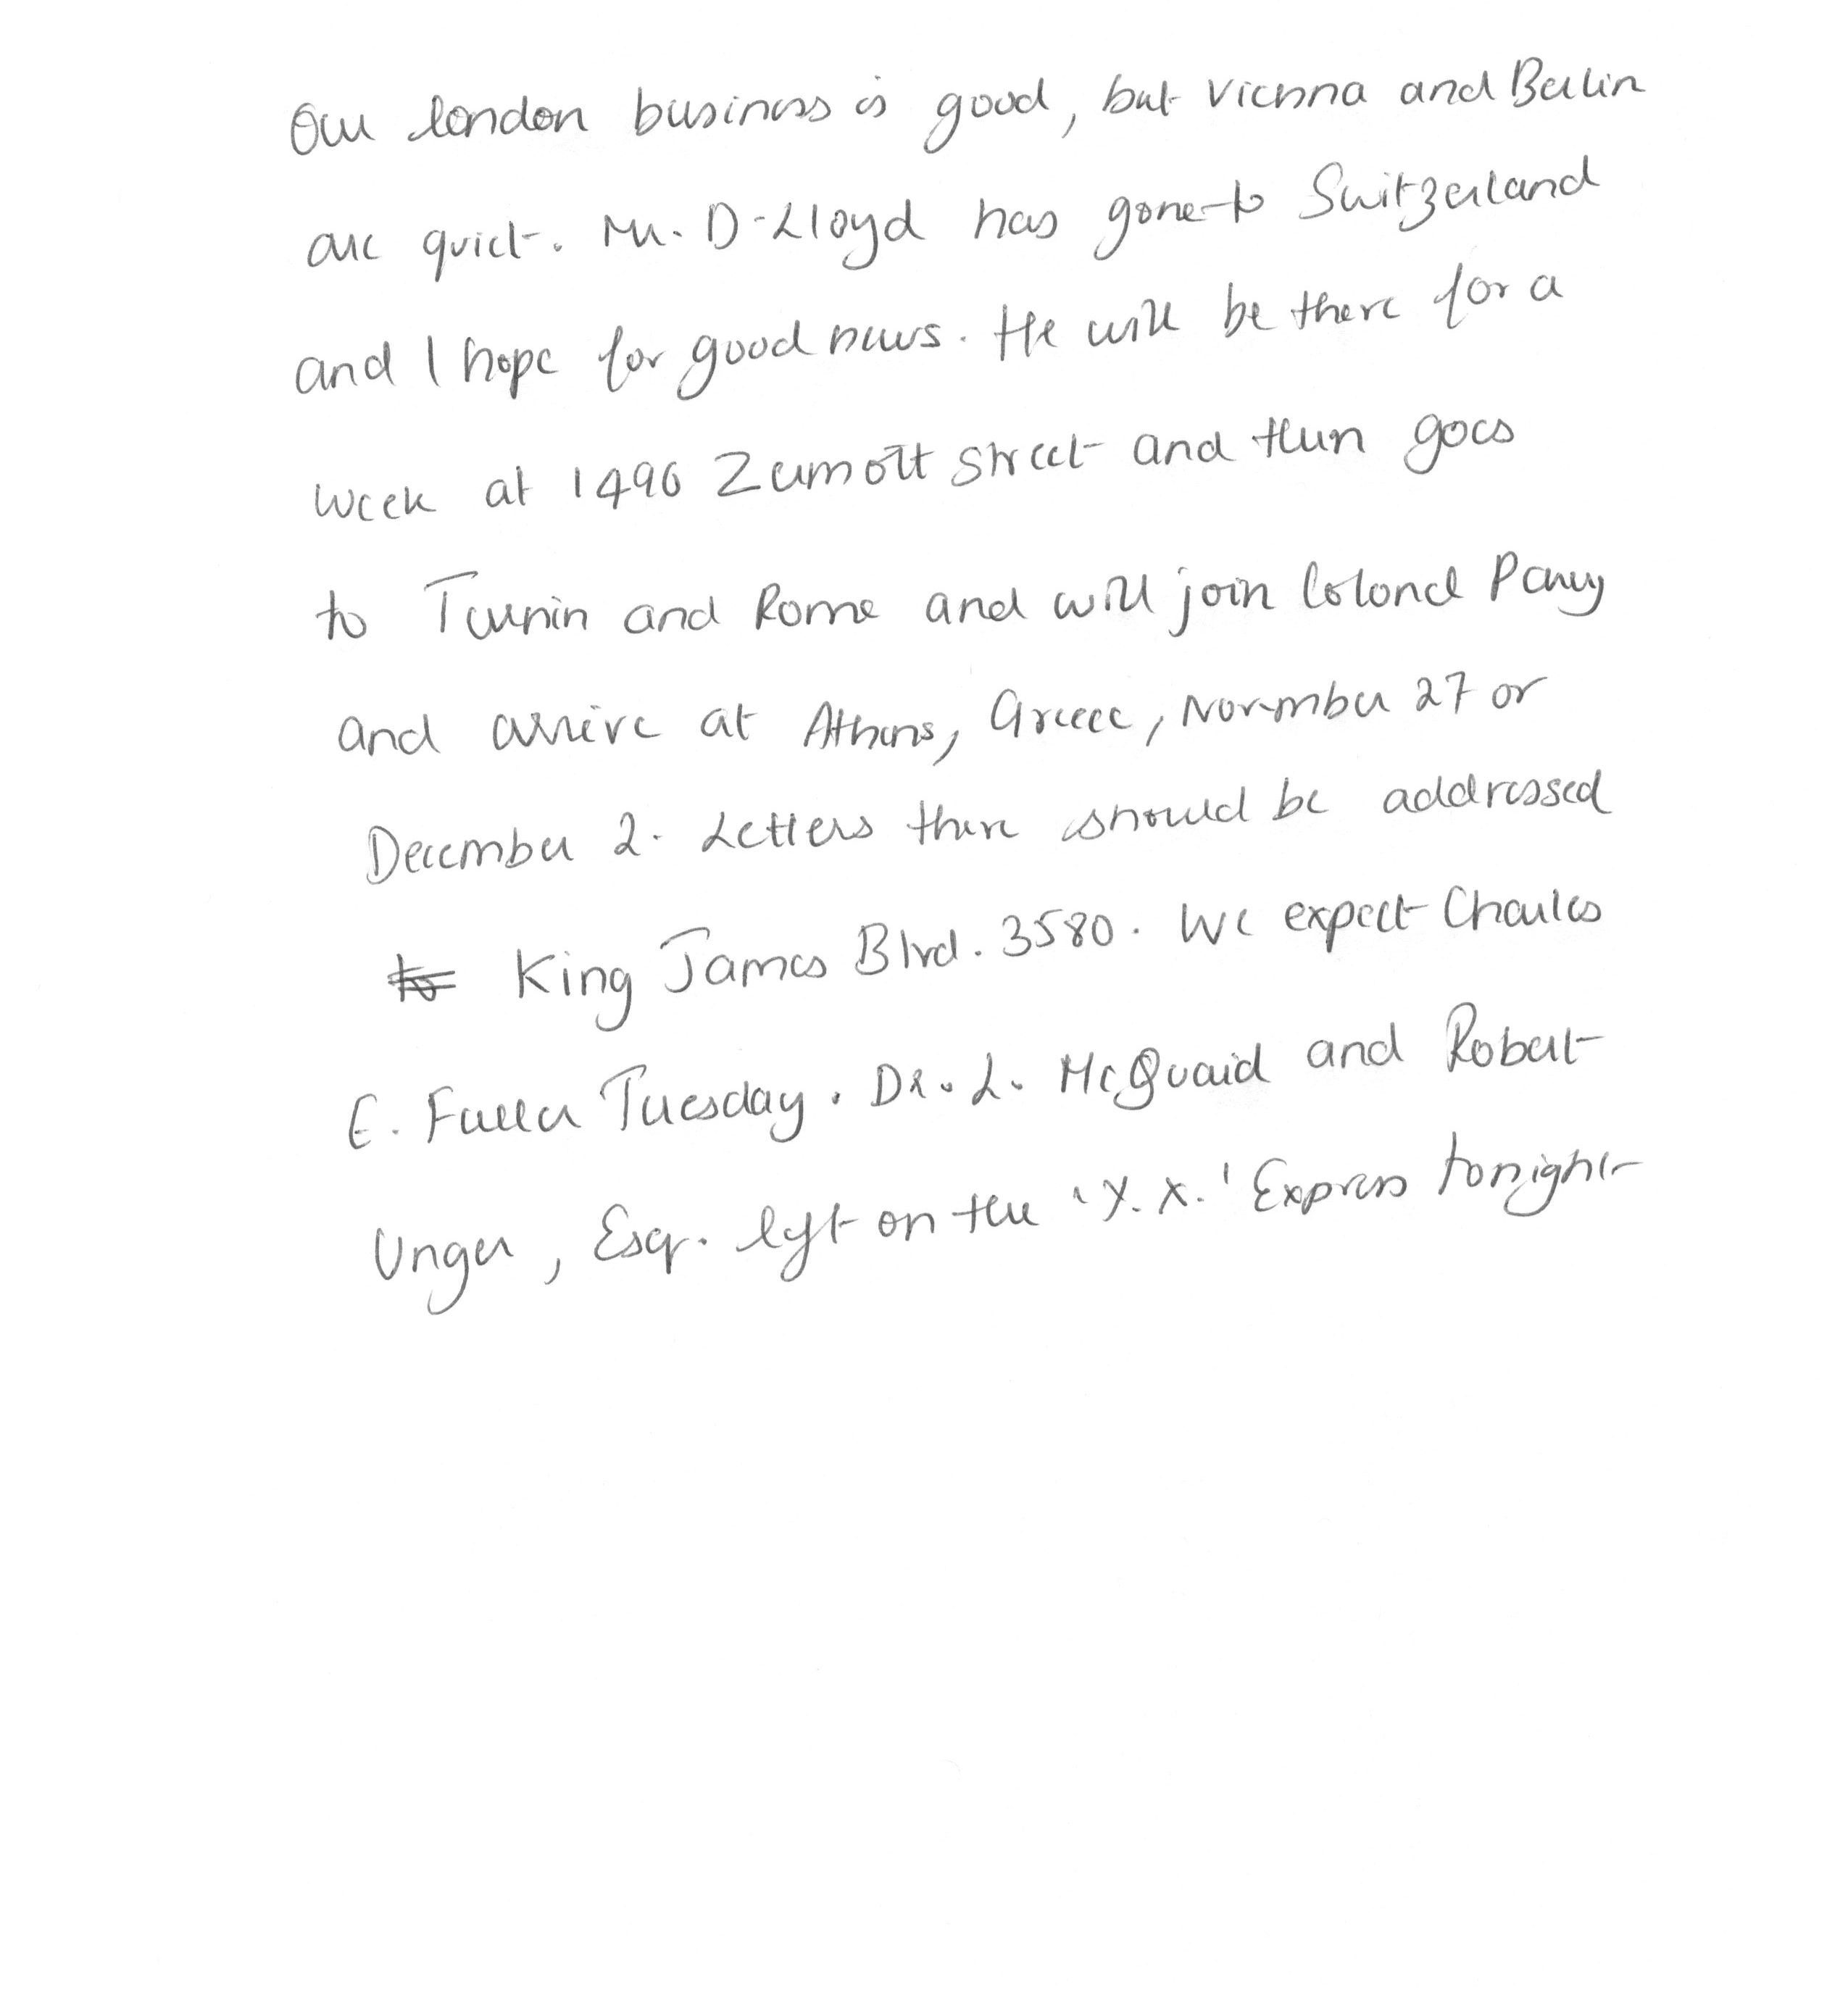 Our london business is good, but Vienna and Berlin
are quiet. Mr. D. Lloyd has gone to Switzerland
and I hope for good news. He will be there for a
week at 1496 Zumott Street and then goes
to Turnin and Rome and will join Colonel Parry
and arrive at Athens, Greece, November 27 or
December 2. Letters there should be addressed
to King James Blvd. 3580. We expect Charles
E. Fuller Tuesday. Dr. L. McQuaid and Robert
Unger, Esq. left on the 'Y.X.' Express tonight